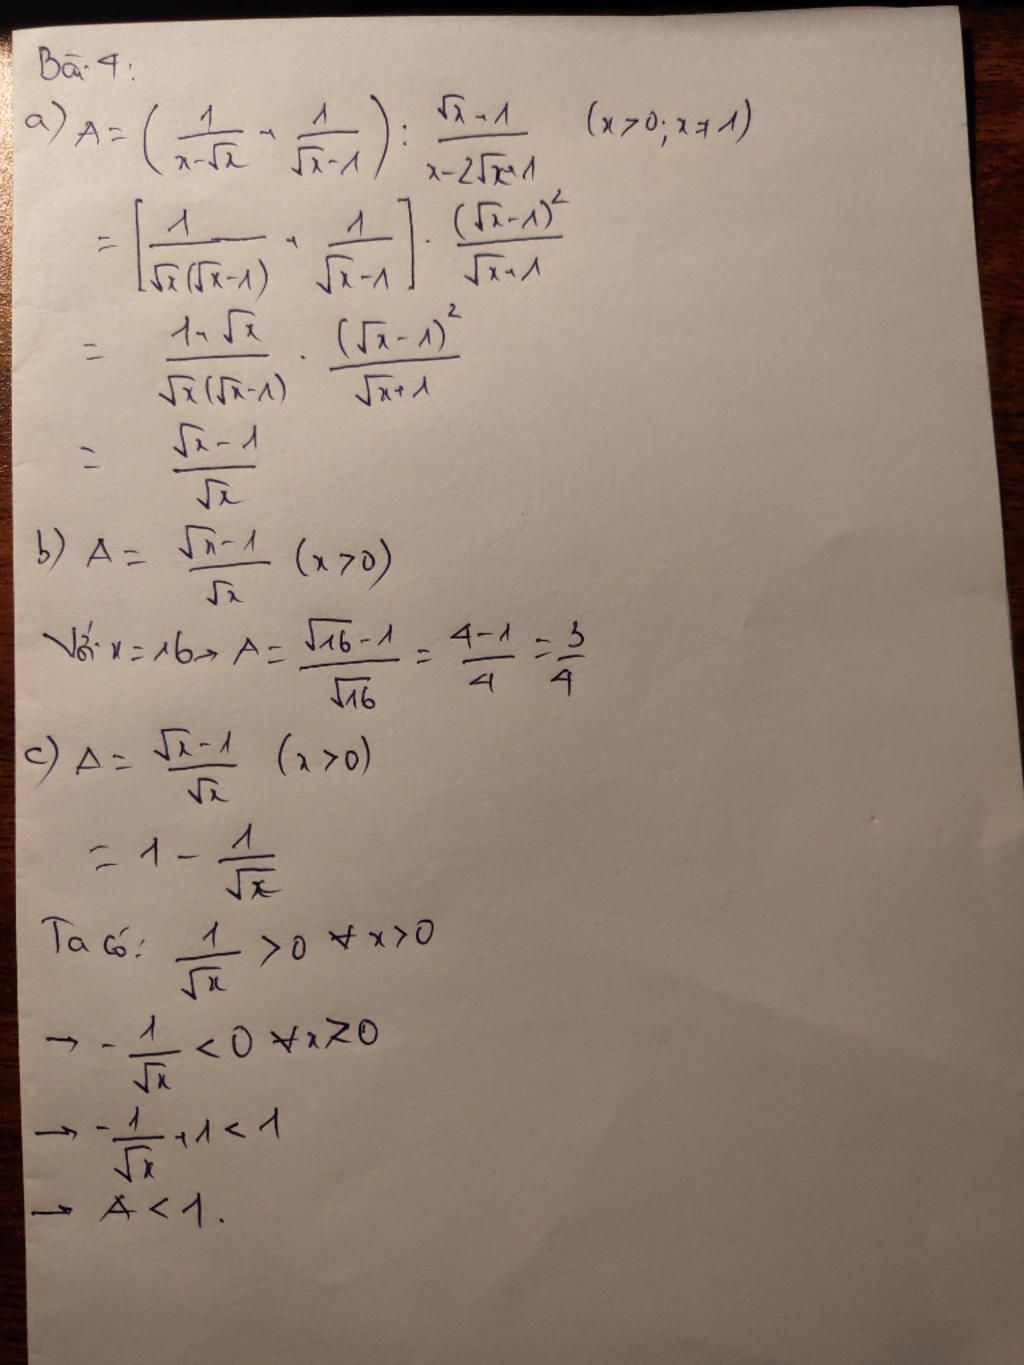 Bài 4:
a) A = (1/(x-√x) + 1/(√x-1)) : (√x+1)/(x-2√x+1) (x>0; x≠1)
= [1/(√x(√x-1)) + 1/(√x-1)] . (√x-1)²/(√x+1)
= (1+√x)/(√x(√x-1)) . (√x-1)²/(√x+1)
= (√x-1)/√x
b) A = (√x-1)/√x (x>0)
Với x=16 → A = (√16-1)/√16 = (4-1)/4 = 3/4
c) A = (√x-1)/√x (x>0)
= 1 - 1/√x
Ta có: 1/√x >0 ∀x>0
→ -1/√x <0 ∀x>0
→ -1/√x +1<1
→ A<1.